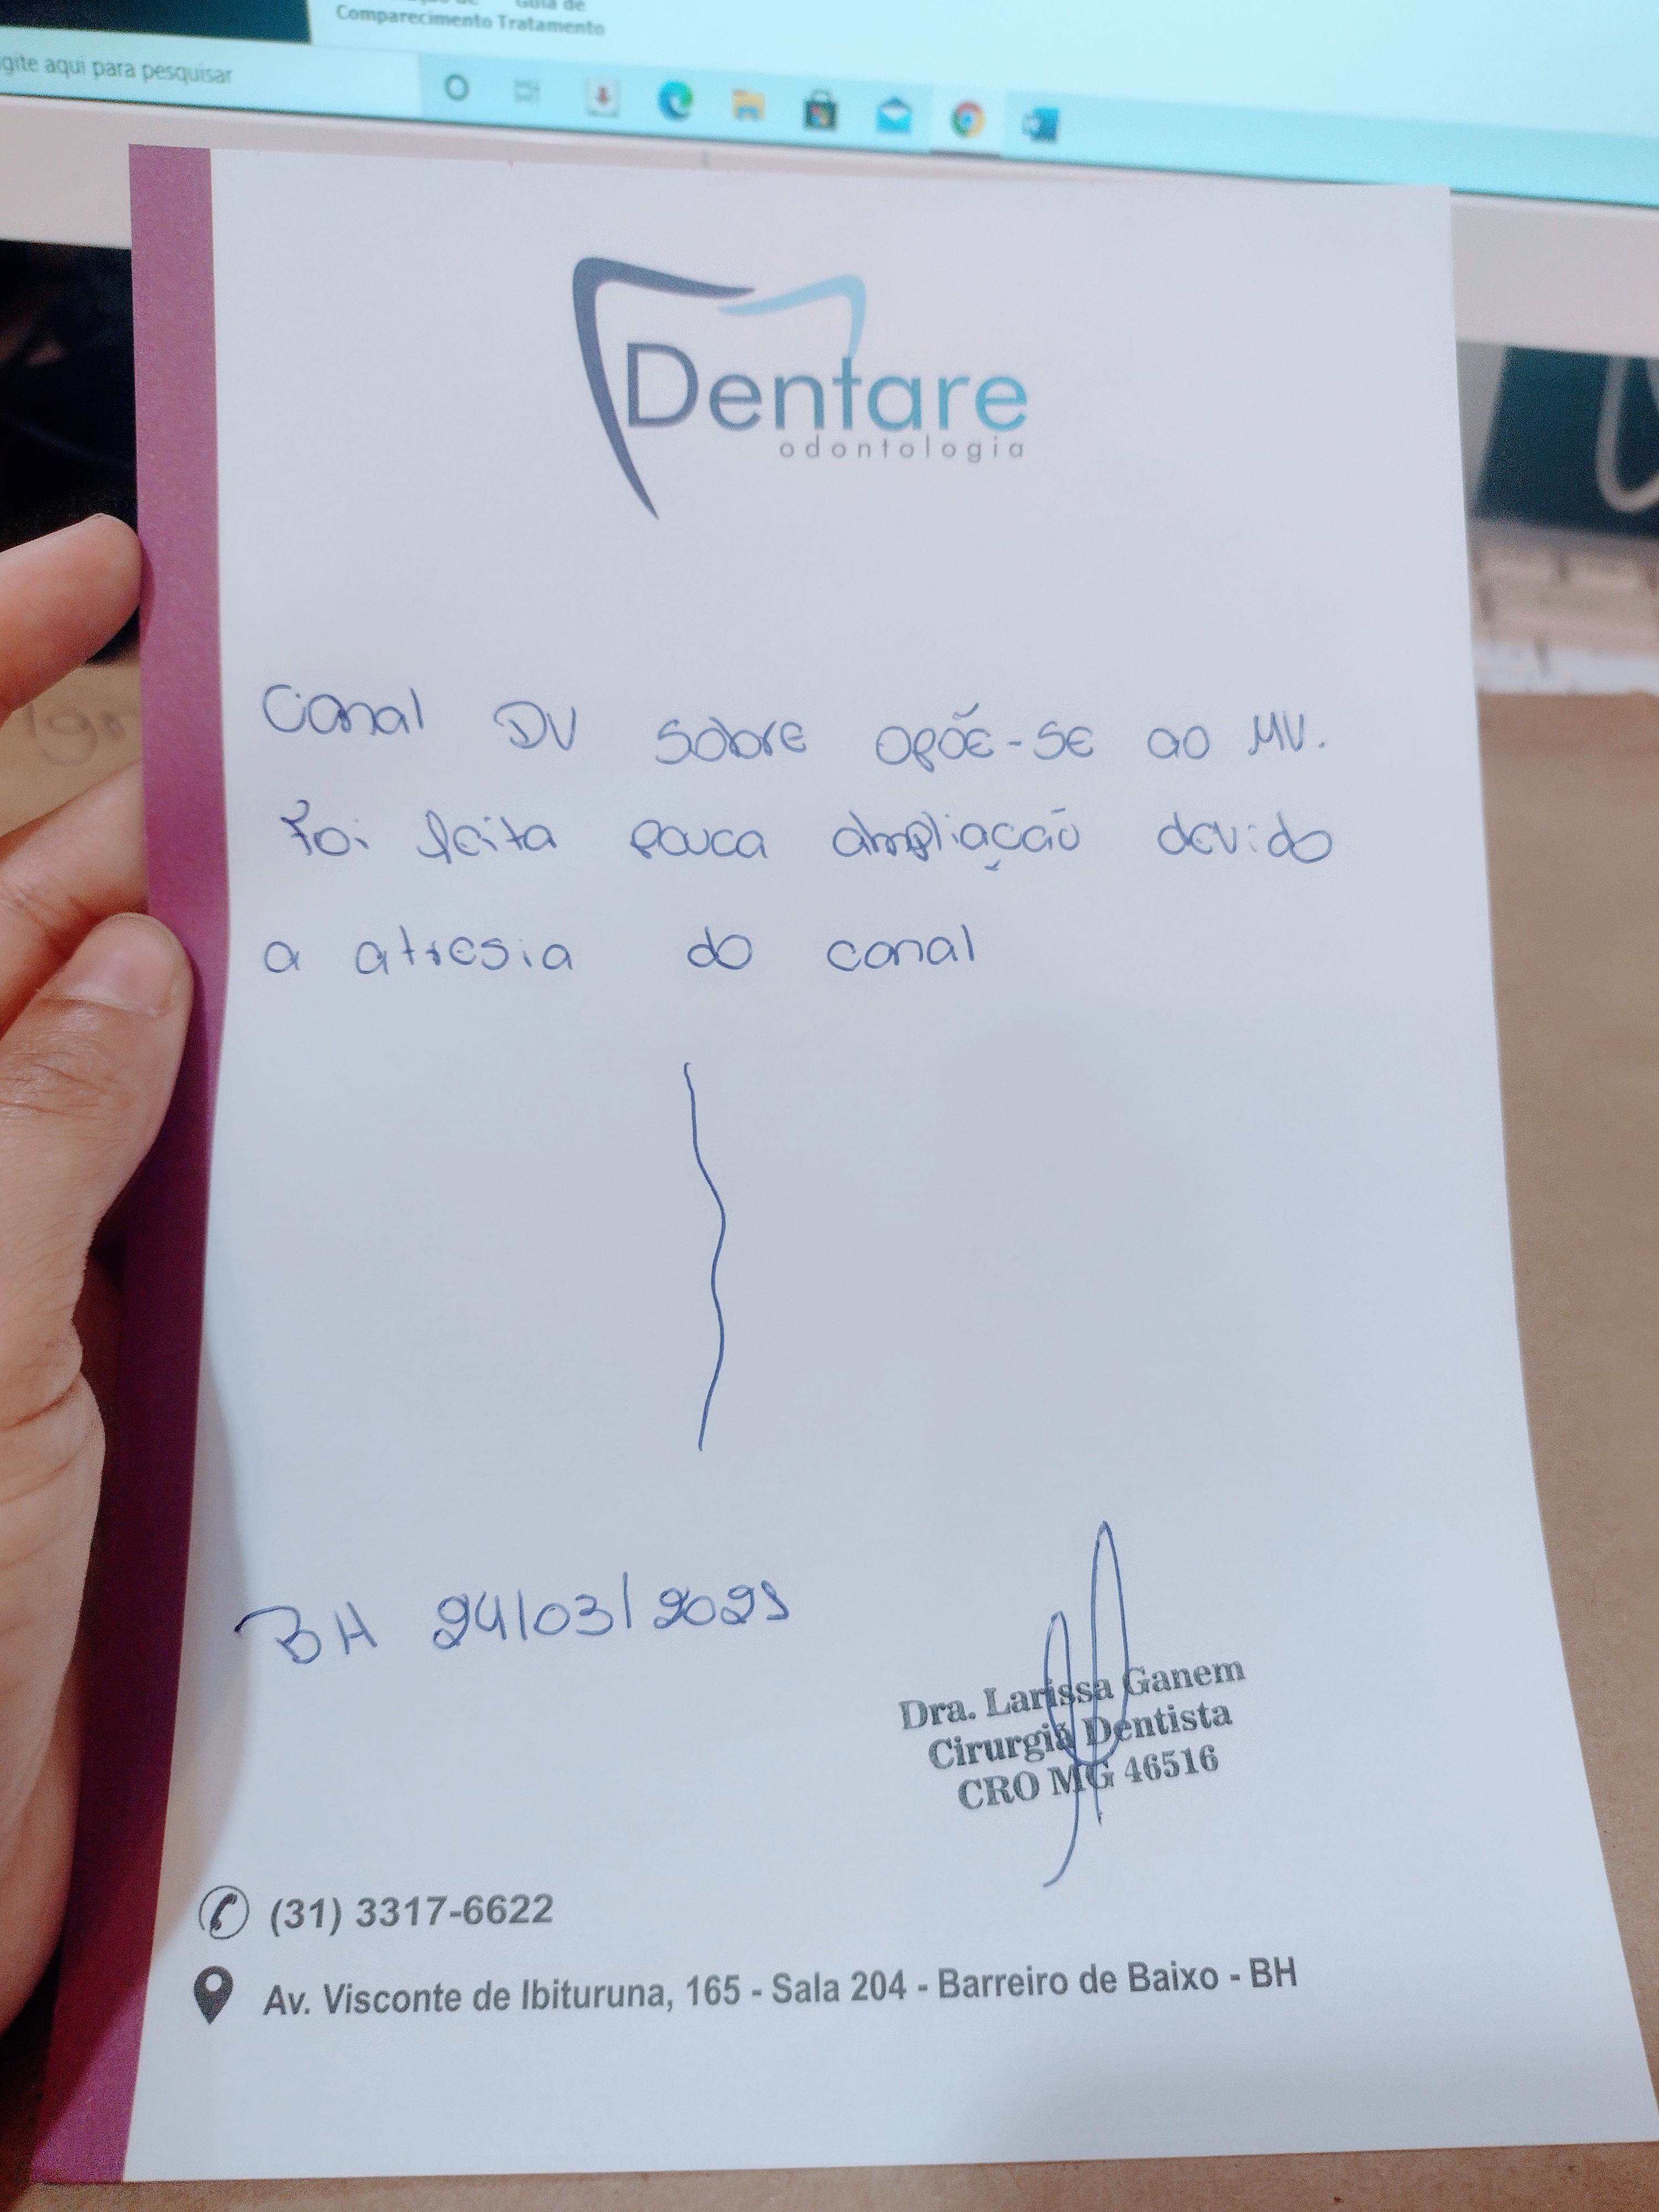 Guia de
Comparecimento Tratamento
gite aqui para pesquisar
Dentare
odontologia
Canal DV sobre opõe-se ao MV.
Foi feita pouca ampliação devido
a atresia do canal
BH 24/03/2023
Dra. Larissa Ganem
Cirurgiã Dentista
CRO MG 46516
(31) 3317-6622
Av. Visconte de Ibituruna, 165 - Sala 204 - Barreiro de Baixo - BH